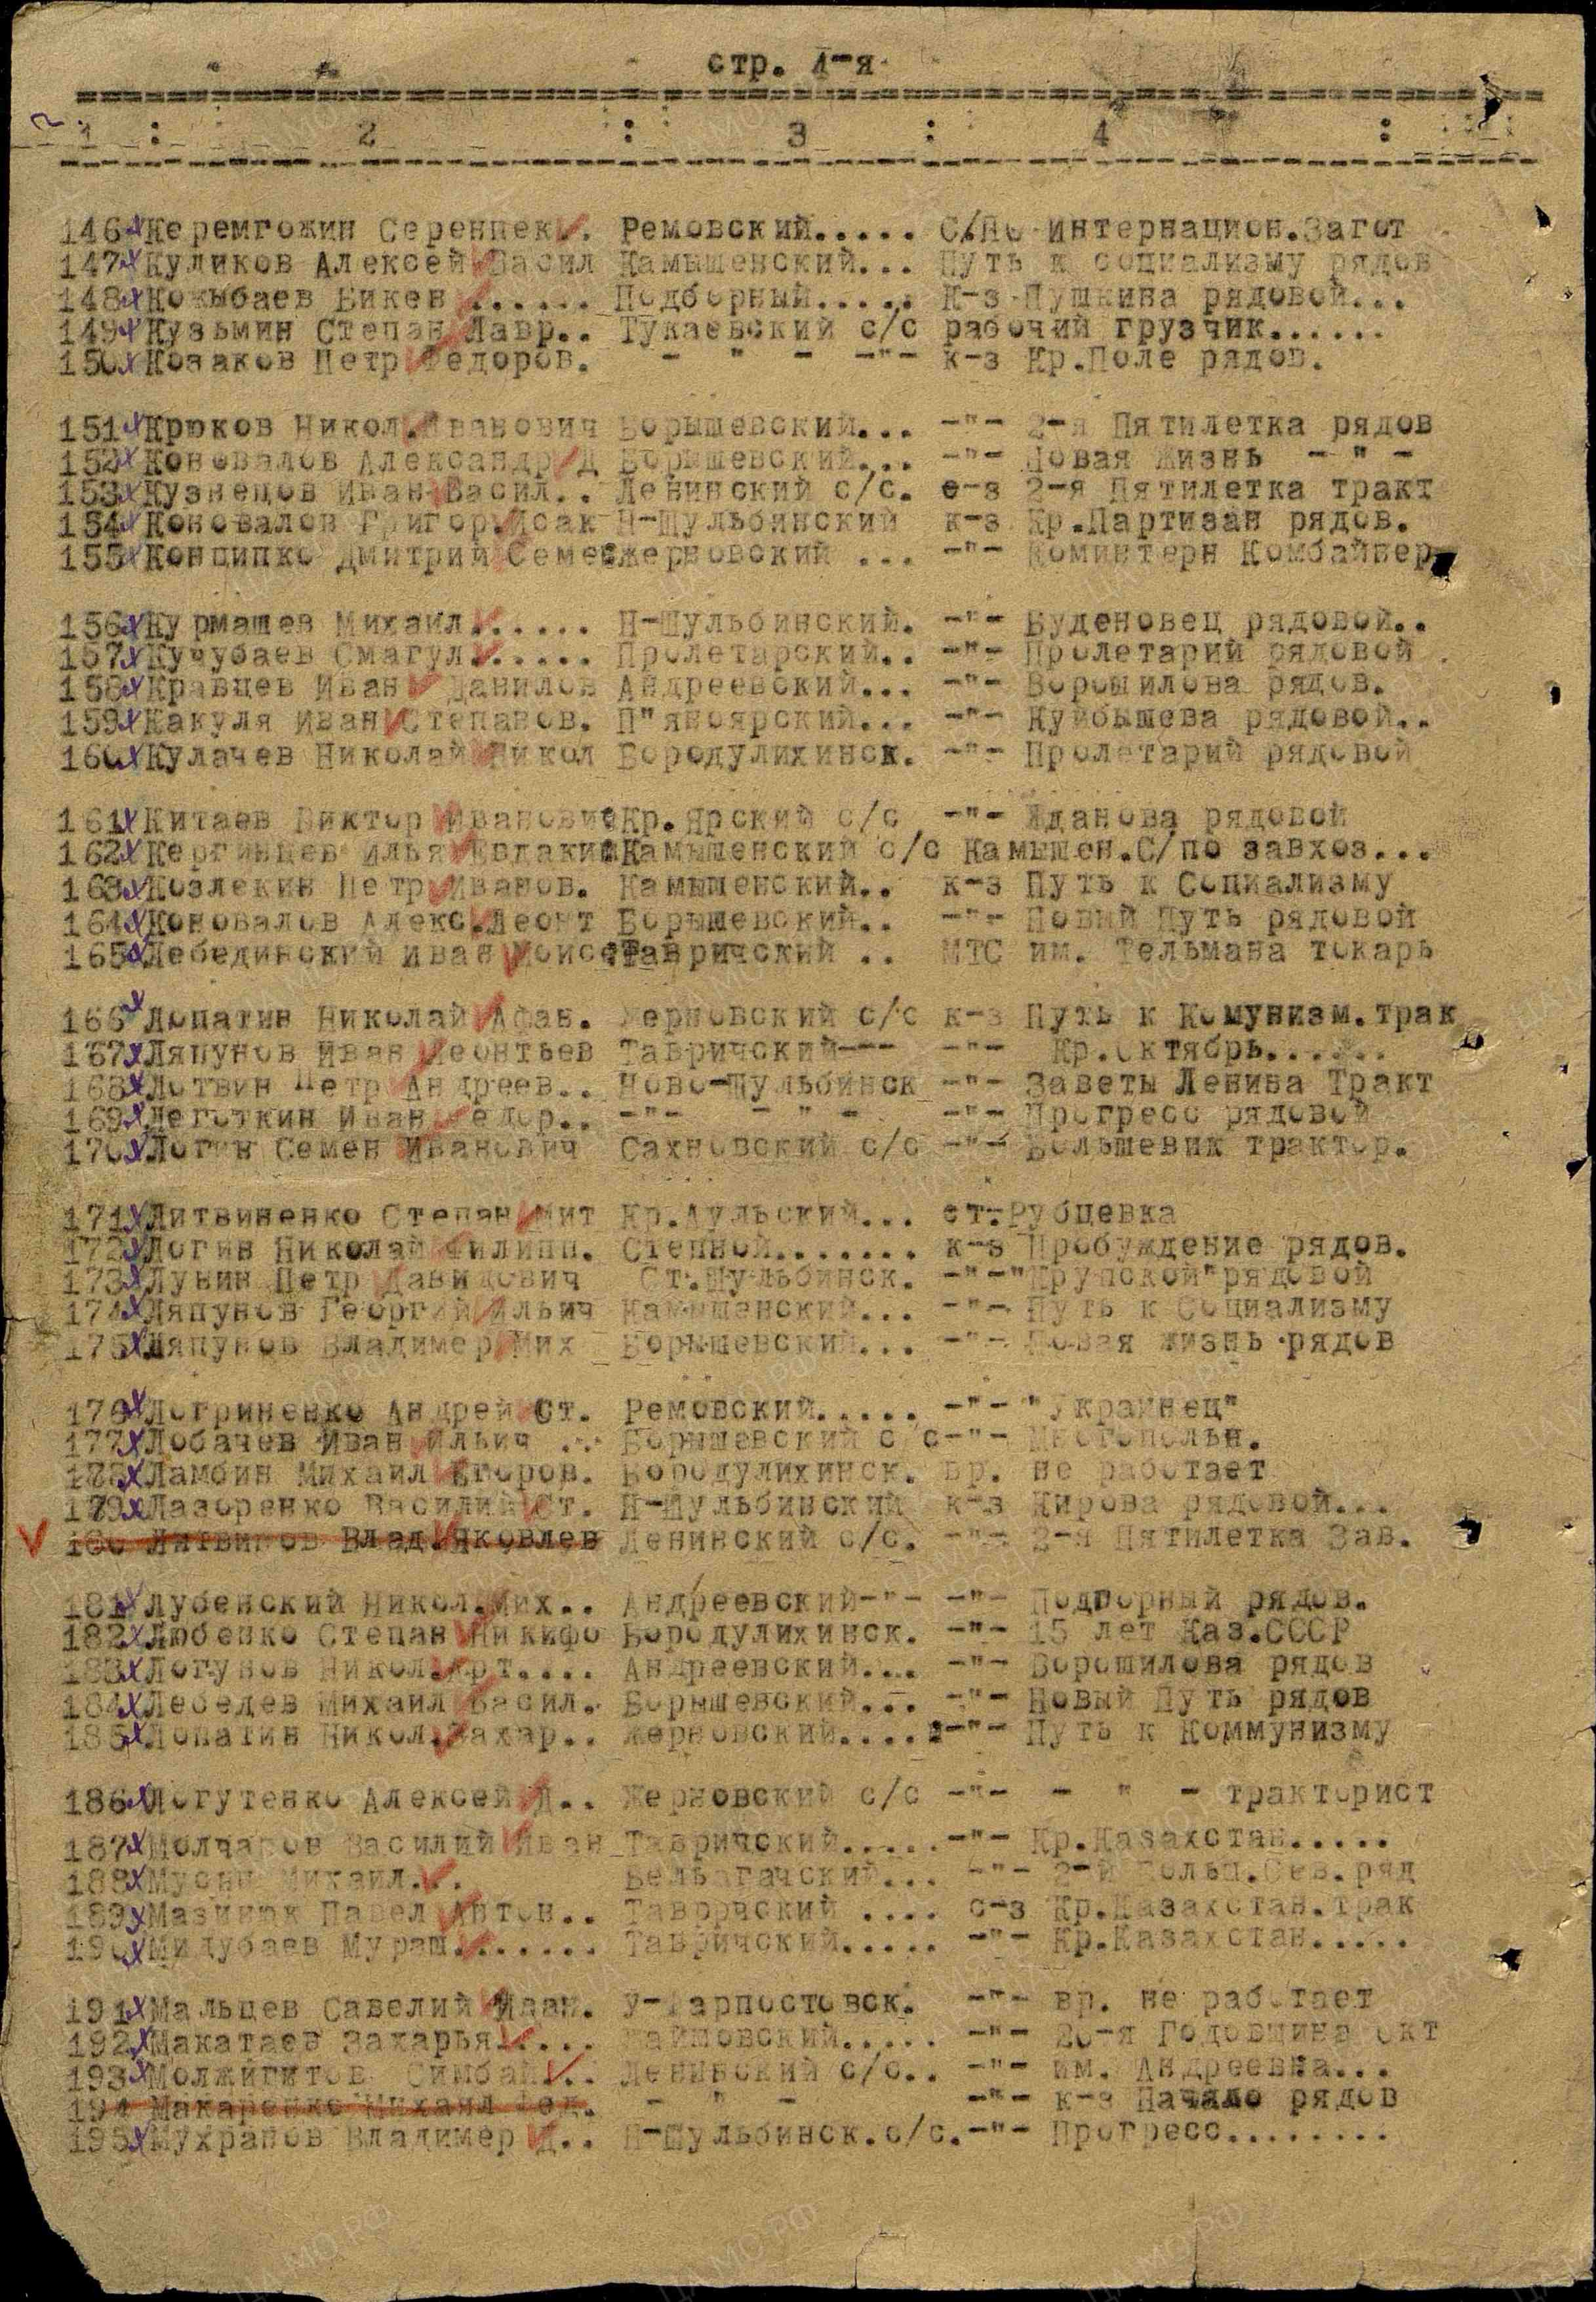 стр. 4-я
1 : 2 : 3 : 4 :
146 Керемгожин Серенпек. Ремовский..... С/По Интернацион.Загот
147 Куликов Алексей Васил Камышенский... Путь к социализму рядов
148 Кожыбаев Бикен ...... Подборный..... К-з Пушкина рядовой...
149 Кузьмин Степан Лавр.. Тукаевский с/с рабочий грузчик......
150 Козаков Петр Федоров. - " - -"- к-з Кр.Поле рядов.
151 Крюков Никол.Иванович Борышевский... -"- 2-я Пятилетка рядов
152 Коновалов Александр Д Борышевский... -"- Новая Жизнь - " -
153 Кузнецов Иван Васил.. Ленинский с/с. с-з 2-я Пятилетка тракт
154 Коновалов Григор.Исак Н-Шульбинский к-з Кр.Партизан рядов.
155 Конципко Дмитрий Семен Жерновский ... -"- Коминтерн Комбайнер
156 Курмашев Михаил...... Н-Шульбинский. -"- Буденовец рядовой..
157 Кучубаев Смагул...... Пролетарский.. -"- Пролетарий рядовой .
158 Кравцев Иван Данилов Андреевский... -"- Ворошилова рядов.
159 Какуля Иван Степанов. П"яноярский... -"- Куйбышева рядовой..
160 Кулачев Николай Никол Бородулихинск. -"- Пролетарий рядовой
161 Китаев Виктор Иванович Кр.Ярский с/с -"- Жданова рядовой
162 Кергинцев Илья Евдаким Камышенский с/с Камышен.С/по завхоз...
163 Козлекин Петр Иванов. Камышенский.. к-з Путь к Социализму
164 Коновалов Алекс.Леонт Борышевский.. -"- Новый Путь рядовой
165 Лебединский Иван Моисе Таврический .. МТС им. Тельмана токарь
166 Лопатин Николай Афан. Жерновский с/с к-з Путь к Комунизм.трак
167 Ляпунов Иван Леонтьев Таврический--- -"- Кр.Октябрь......
168 Лотвин Петр Андреев.. Ново-Шульбинск -"- Заветы Ленина Тракт
169 Леготкин Иван Федор.. -"- - " - -"- Прогресс рядовой
170 Логин Семен Иванович Сахновский с/с -"- Большевик трактор.
171 Литвиненко Степан Мит Кр.Аульский... ст.Рубцевка
172 Логин Николай Филипп. Степной....... к-з Пробуждение рядов.
173 Лунин Петр Давидович Ст.Шульбинск. -"-"Крупской"рядовой
174 Ляпунов Георгий Ильич Камышенский... -"- Путь к Социализму
175 Ляпунов Владимер Мих Борышевский... -"- Новая жизнь рядов
176 Логриненко Андрей Ст. Ремовский...... -"- "Украинец"
177 Лобачев Иван Ильич ... Борышевский с с-"- Многопольн.
178 Ламбин Михаил Егоров. Бородулихинск. вр. не работает
179 Лазоренко Василий Ст. Н-Шульбинский к-з Кирова рядовой...
180 Литвинов Влад.Яковлев Ленинский с/с. -"- 2-я Пятилетка Зав.
181 Лубенский Никол.Мих.. Андреевский-"- -"- Подворный рядов.
182 Любенко Степан Никифо Бородулихинск. -"- 15 лет Каз.СССР
183 Логунов Никол.Арт.... Андреевский... -"- Ворошилова рядов
184 Лебедев Михаил Васил. Борышевский... -"- Новый Путь рядов
185 Лопатин Никол.Захар.. Жерновский.... -"- Путь к Коммунизму
186 Логутенко Алексей Д.. Жерновский с/с -"- - " - тракторист
187 Молчанов Василий Иван Таврический..... -"- Кр.Казахстан.....
188 Михаил... Бельагачский... -"- 2-й
189 Мазинюк Павел Антон.. .... с-з Кр.Казахстан.трак
190 Мидубаев Мураш....... Таврический..... -"- Кр.Казахстан.....
191 Мальцев Савелий Иван. У-Фарпостовск. -"- вр. не работает
192 Макатаев Захарья..... -"- 20-я Годовщина Окт
193 Молжигитов Симбай... Ленинский с/с.. -"- им. Андреевна...
194 Макаренко Михаил Фед. - " - -"- к-з Начало рядов
195 Мухранов Владимер Д.. Н-Шульбинск.с/с.-"- Прогресс........